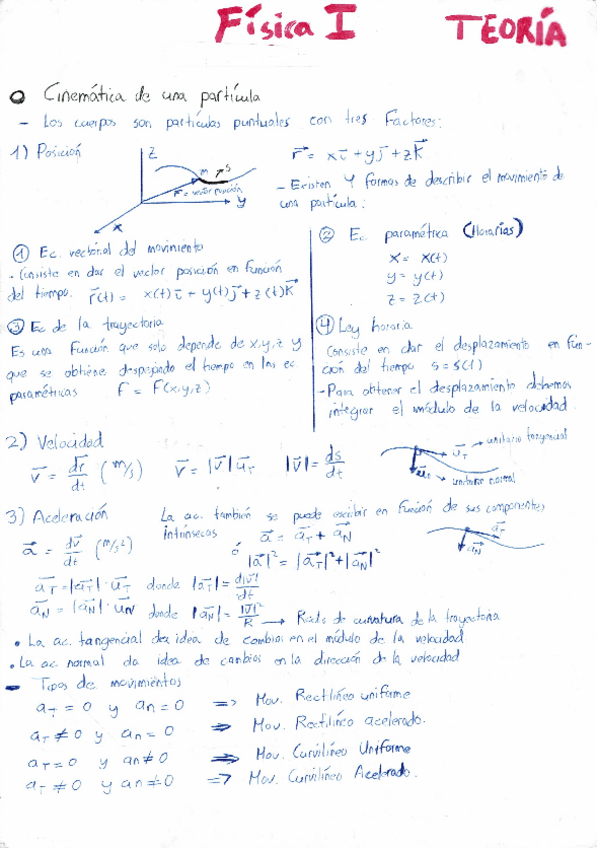 Física I TEORÍA
Cinemática de una partícula
- Los cuerpos son partículas puntuales con tres Factores:
1) Posición
z
m
s
r = vector función
y
x
r⃗ = xi⃗ + yj⃗ + zk⃗
- Existen 4 formas de describir el movimiento de
una partícula:
① Ec. vectorial del movimiento
- Consiste en dar el vector posición en función
del tiempo. r⃗(t) = x(t)i⃗ + y(t)j⃗ + z(t)k⃗
② Ec. paramétrica (Horarias)
x = x(t)
y = y(t)
z = z(t)
③ Ec de la trayectoria
Es una Función que solo depende de x, y, z y
que se obtiene despejando el tiempo en las ec.
paramétricas F = F(x,y,z)
④ Ley horaria
Consiste en dar el desplazamiento en fun-
ción del tiempo s = s(t)
- Para obtener el desplazamiento debemos
integrar el módulo de la velocidad.
2) Velocidad
v⃗ = dr⃗/dt (m/s) v⃗ = |v⃗| u⃗T |v⃗| = ds/dt
u⃗T → unitario tangencial
u⃗N → unitario normal
3) Aceleración La ac. también se puede escribir en Función de sus componentes
intrínsecos a⃗ = a⃗T + a⃗N
a⃗ = dv⃗/dt (m/s²)
ó |a⃗|² = |a⃗T|² + |a⃗N|²
a⃗T
a⃗N
a⃗T = |a⃗T| · u⃗T donde |a⃗T| = d|v⃗|/dt
a⃗N = |a⃗N| · u⃗N donde |a⃗N| = |v⃗|²/R → Radio de curvatura de la trayectoria
• La ac. tangencial da idea de cambios en el módulo de la velocidad
• La ac. normal da idea de cambios en la dirección de la velocidad
- Tipos de movimientos
aT = 0 y an = 0 => Mov. Rectilíneo uniforme
aT ≠ 0 y an = 0 => Mov. Rectilíneo acelerado.
aT = 0 y an ≠ 0 => Mov. Curvilíneo Uniforme
aT ≠ 0 y an ≠ 0 => Mov. Curvilíneo Acelerado.